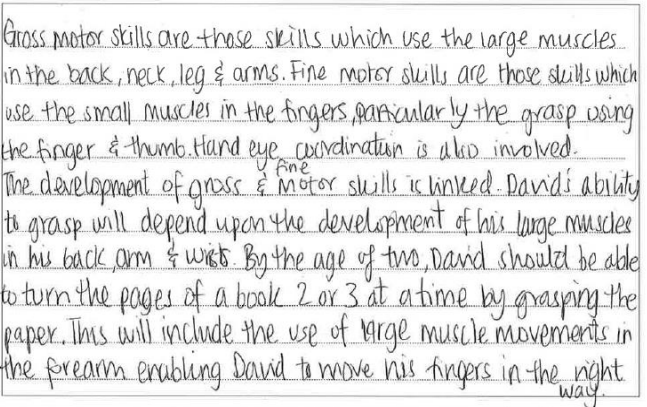 Gross motor skills are those skills which use the large muscles
in the back, neck, leg & arms. Fine motor skills are those skills which
use the small muscles in the fingers, particularly the grasp using
the finger & thumb. Hand eye coordination is also involved.
The development of gross & fine motor skills is linked. David's ability
to grasp will depend upon the development of his large muscles
in his back, arm & wrists. By the age of two, David should be able
to turn the pages of a book 2 or 3 at a time by grasping the
paper. This will include the use of large muscle movements in
the forearm enabling David to move his fingers in the right
way.